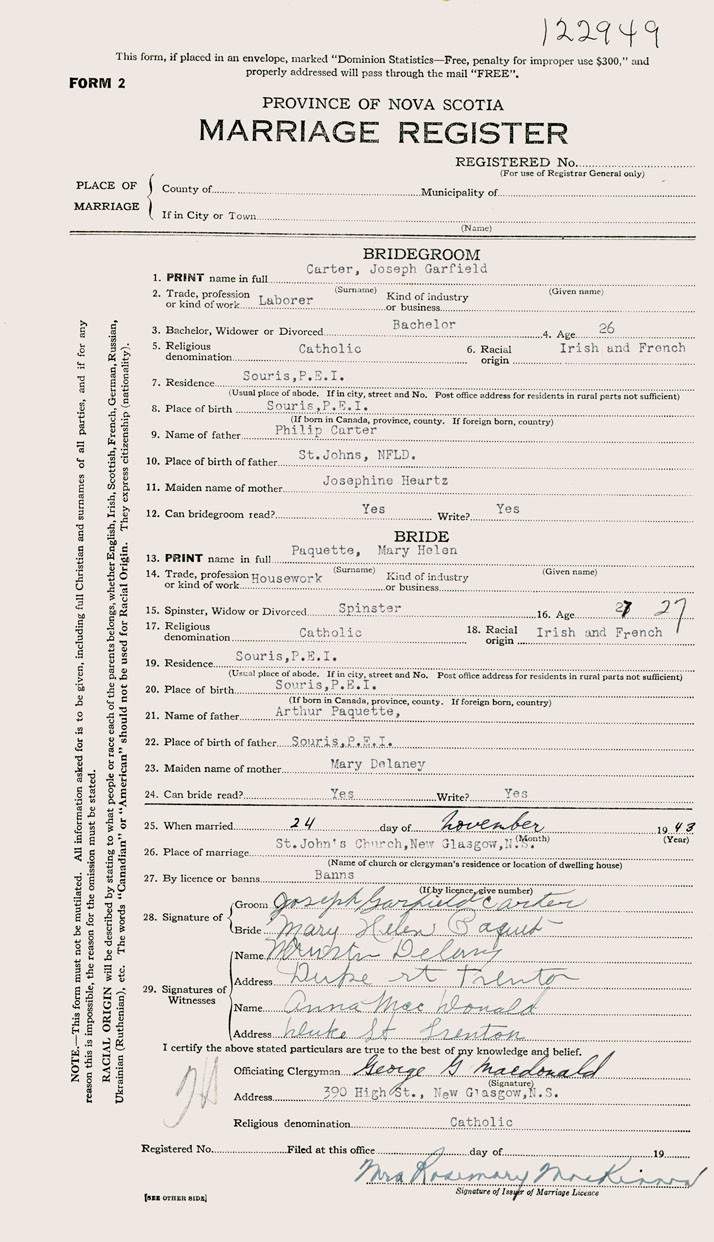 122949
This form, if placed in an envelope, marked "Dominion Statistics—Free, penalty for improper use $300," and
properly addressed will pass through the mail "FREE".
FORM 2
PROVINCE OF NOVA SCOTIA
MARRIAGE REGISTER
REGISTERED No.
(For use of Registrar General only)
PLACE OF MARRIAGE
County of Municipality of
If in City or Town
(Name)
BRIDEGROOM
1. PRINT name in full Carter, Joseph Garfield
(Surname) (Given name)
2. Trade, profession or kind of work Laborer Kind of industry or business
3. Bachelor, Widower or Divorced Bachelor 4. Age 26
5. Religious denomination Catholic 6. Racial origin Irish and French
7. Residence Souris,P.E.I.
(Usual place of abode. If in city, street and No. Post office address for residents in rural parts not sufficient)
8. Place of birth Souris,P.E.I.
(If born in Canada, province, county. If foreign born, country)
9. Name of father Philip Carter
10. Place of birth of father St.Johns, NFLD.
11. Maiden name of mother Josephine Heartz
12. Can bridegroom read? Yes Write? Yes
BRIDE
13. PRINT name in full Paquette, Mary Helen
(Surname) (Given name)
14. Trade, profession or kind of work Housework Kind of industry or business
15. Spinster, Widow or Divorced Spinster 16. Age 27 27
17. Religious denomination Catholic 18. Racial origin Irish and French
19. Residence Souris,P.E.I.
(Usual place of abode. If in city, street and No. Post office address for residents in rural parts not sufficient)
20. Place of birth Souris,P.E.I.
(If born in Canada, province, county. If foreign born, country)
21. Name of father Arthur Paquette,
22. Place of birth of father Souris,P.E.I.
23. Maiden name of mother Mary Delaney
24. Can bride read? Yes Write? Yes
25. When married 24 day of november 1943
(Month) (Year)
26. Place of marriage St.John's Church,New Glasgow,N.S.
(Name of church or clergyman's residence or location of dwelling house)
27. By licence or banns Banns
(If by licence, give number)
28. Signature of
Groom Joseph Garfield Carter
Bride Mary Helen Paquet
29. Signatures of Witnesses
Name Delany
Address Duke st Trenton
Name Anna Mac Donald
Address Duke St Trenton
I certify the above stated particulars are true to the best of my knowledge and belief.
Officiating Clergyman George G Macdonald
(Signature)
Address 390 High St., New Glasgow,N.S.
Religious denomination Catholic
Registered No. Filed at this office day of 19
Mrs Rosemary MacKinnon
Signature of Issuer of Marriage Licence
[SEE OTHER SIDE]
NOTE.—This form must not be mutilated. All information asked for is to be given, including full Christian and surnames of all parties, and if for any
reason this is impossible, the reason for the omission must be stated.
RACIAL ORIGIN will be described by stating to what people or race each of the parents belongs, whether English, Irish, Scottish, French, German, Russian,
Ukrainian (Ruthenian), etc. The words "Canadian" or "American" should not be used for Racial Origin. They express citizenship (nationality).